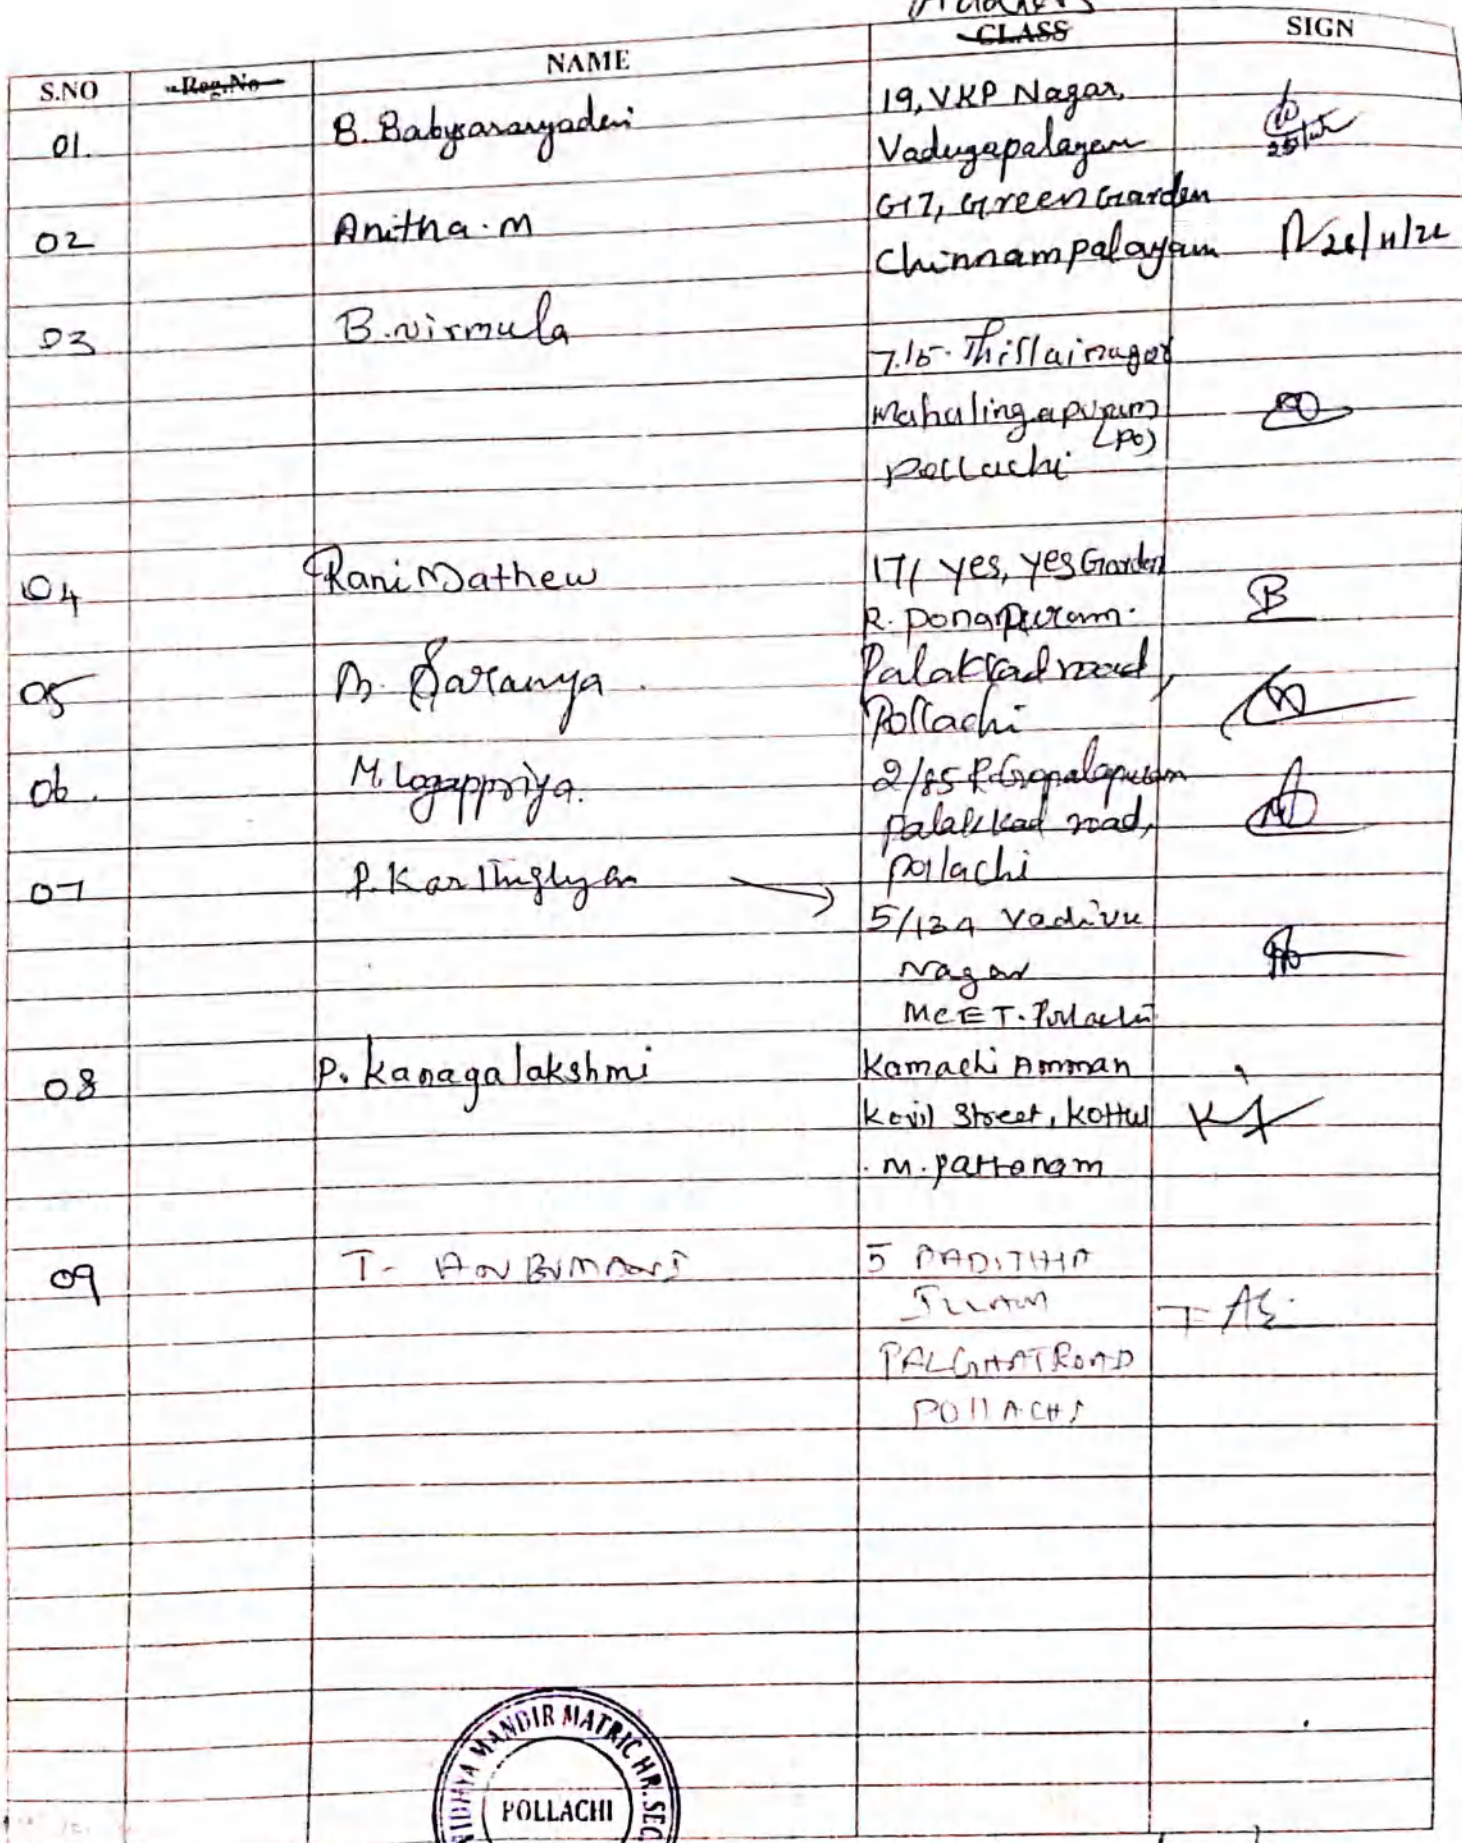 Address
S.NO Reg.No NAME CLASS SIGN
01. B. Babysaranyadevi 19, VKP Nagar,
Vadugapalayam
02 Anitha. M G17, Green Garden
Chinnampalayam
03 B. Nirmula 7.15. Thillainagar
Mahalingapuram
(Po)
Pollachi
04 Rani Mathew 171 yes, yes Garden
R. Ponapuram.
05 Saranya. Palakkad road,
Pollachi
06. M. Logappriya. 2/85 R. Gopalapuram
palakkad road,
pollachi
07 P. 5/134 Vadivu
Nagar
MCET. Pollachi
08 P. Kanagalakshmi Kamachi Amman
Kovil Street, Kottur
. M. Pattanam
09 T- ANBUMANI 5 AADITHIA
ILLAM
PALGHAT ROAD
POLLACHI
VIDHYA MANDIR MATRIC HR. SEC
POLLACHI